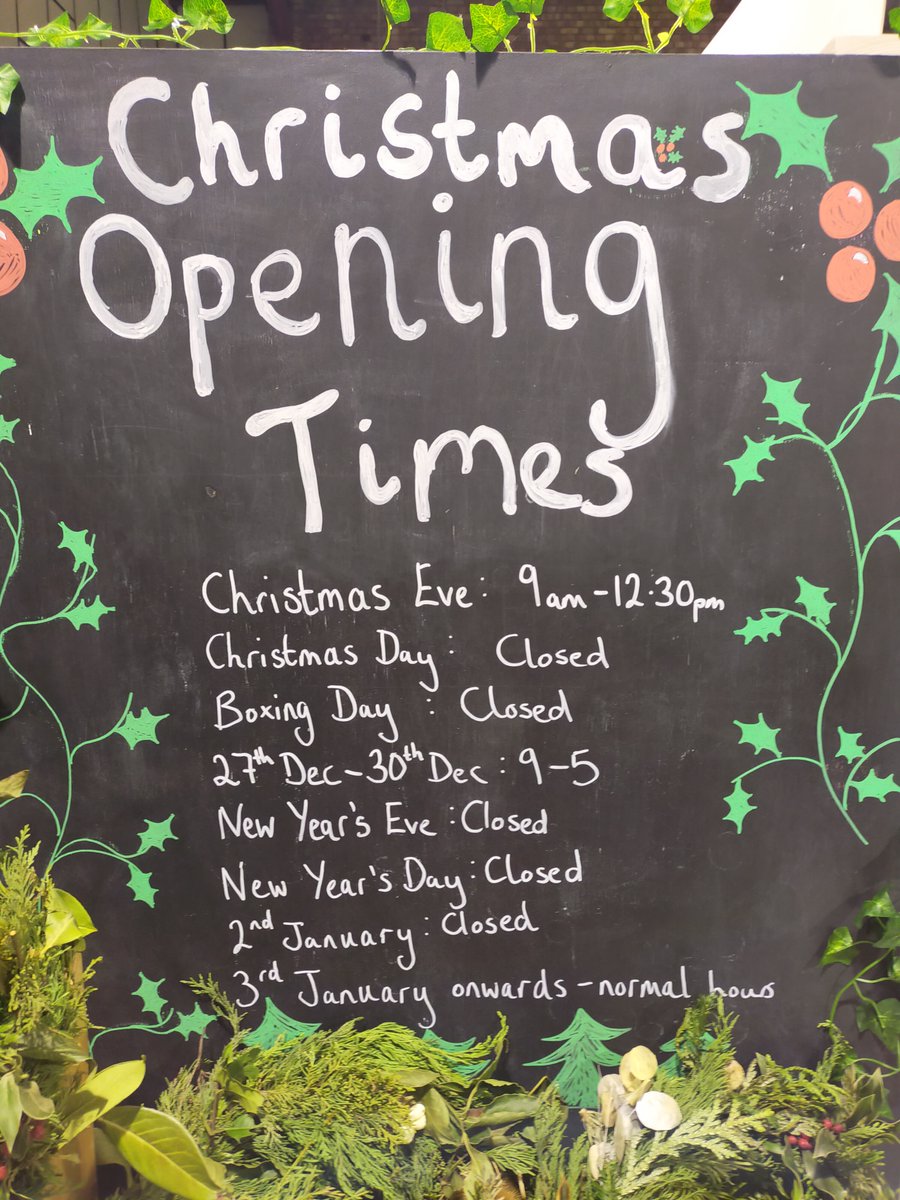 Christmas
Opening
Times
Christmas Eve: 9am-12.30pm
Christmas Day: Closed
Boxing Day : Closed
27th Dec-30th Dec: 9-5
New Year's Eve :Closed
New Year's Day: Closed
2nd January: Closed
3rd January onwards-normal hours